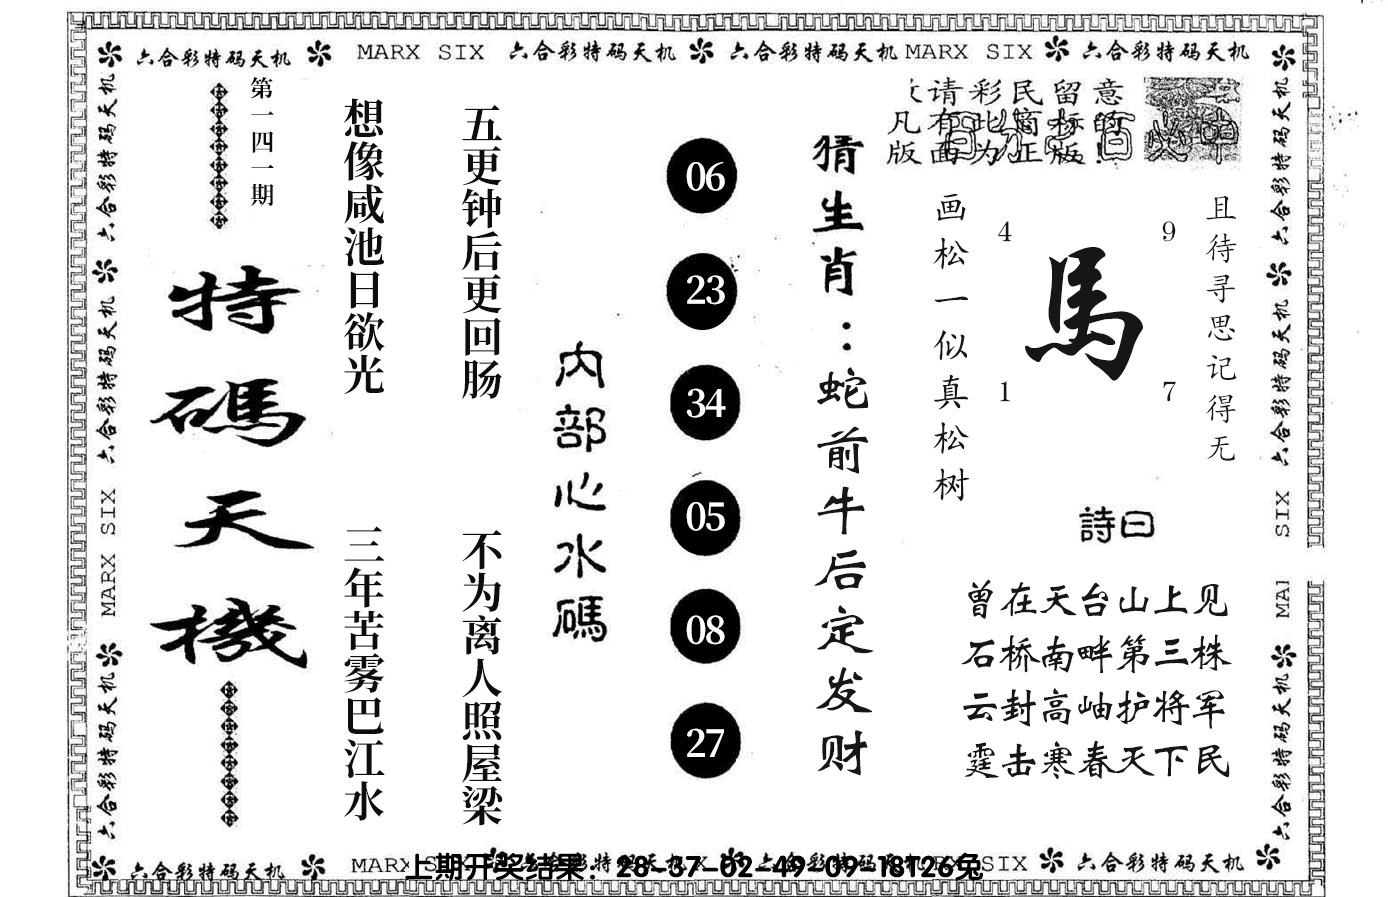 六合彩特码天机 MARX SIX 六合彩特码天机 六合彩特码天机 MARX SIX 六合彩特码天机
六合彩特码天机
六合彩特码天机
MARX SIX
六合彩特码天机
第一四一期
特碼天機
想像咸池日欲光
三年苦雾巴江水
五更钟后更回肠
不为离人照屋梁
内部心水碼
06
23
34
05
08
27
猜生肖：蛇前牛后定发财
请彩民留意
凡有此商标的
版面为正版!
画松一似真松树
4
9
馬
1
7
且待寻思记得无
詩曰
曾在天台山上见
石桥南畔第三株
云封高岫护将军
霆击寒春天下民
六合彩特码天机
六合彩特码天机
SIX
六合彩特码天机
六合彩特码天机 MARX SIX
上期开奖结果：28-37-02-49-09-18T26兔
SIX 六合彩特码天机